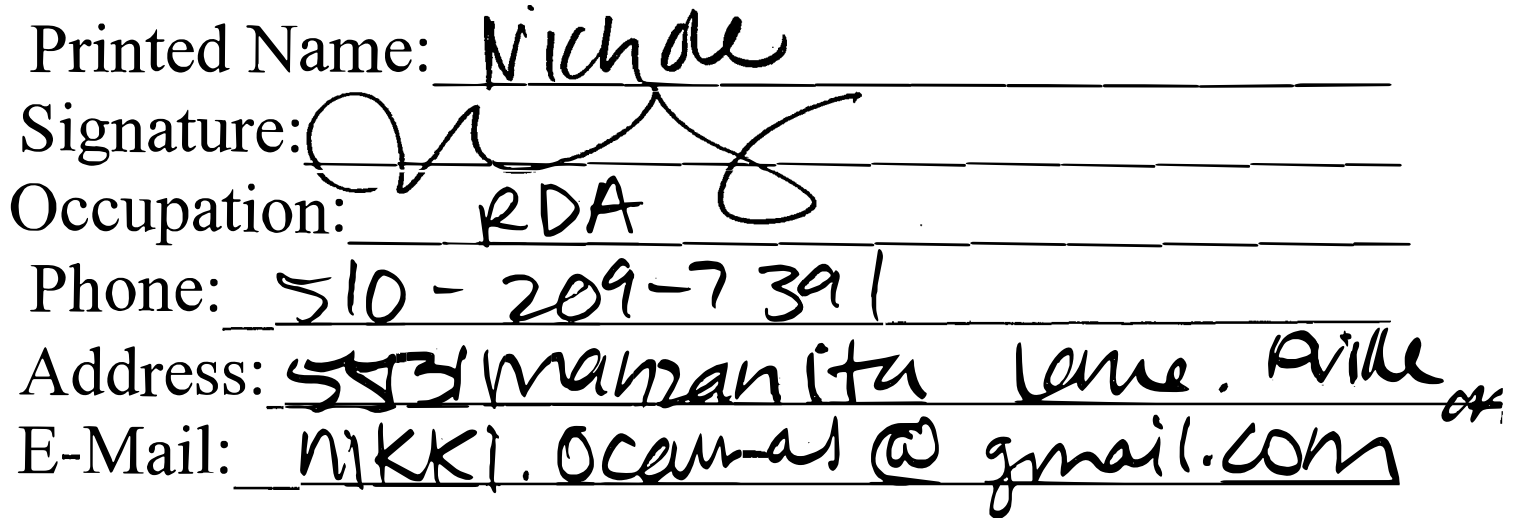 Printed Name: Nichole
Signature:
Occupation: RDA
Phone: 510-209-7391
Address: 5531 manzanita Lane.
E-Mail: @gmail.com